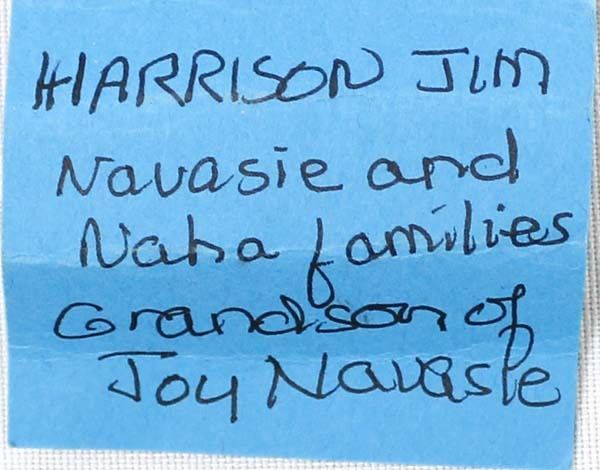 HARRISON JIM
Navasie and
Naha families
Grandson of
Joy Navasie